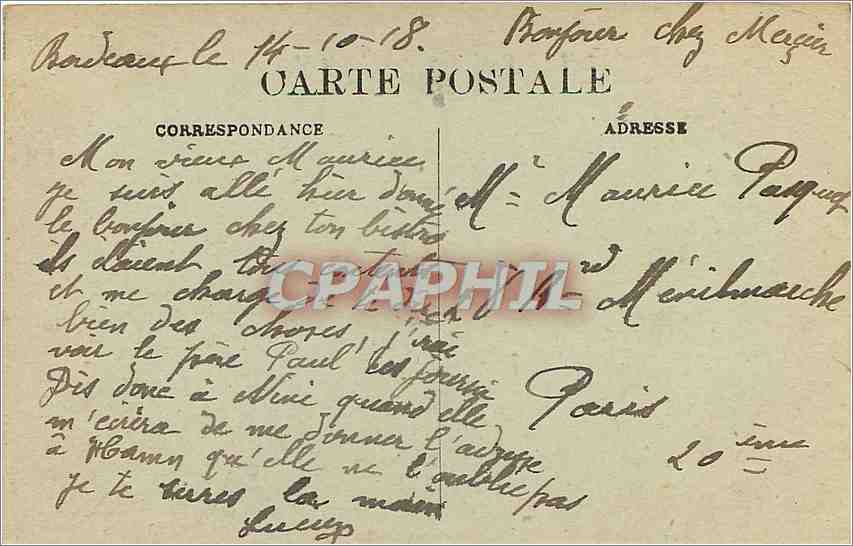 Bordeaux le 14-10-18.
Bonjour chez Mercier
CARTE POSTALE
CORRESPONDANCE
Mon vieux Maurice
je suis allé hier donné
le bonjour chez ton bistro
ils étaient tous
et me charge de te dire
bien des choses, j'irai
voir le frère Paul ces
Dis donc à Nini quand elle
m'écrira de me donner l'adresse
à qu'elle ne l'oublie pas
je te serres la main
ADRESSE
Mr Maurice Pasquet
8 Bd Ménilmontant
Paris
20 ème
CPAPHIL